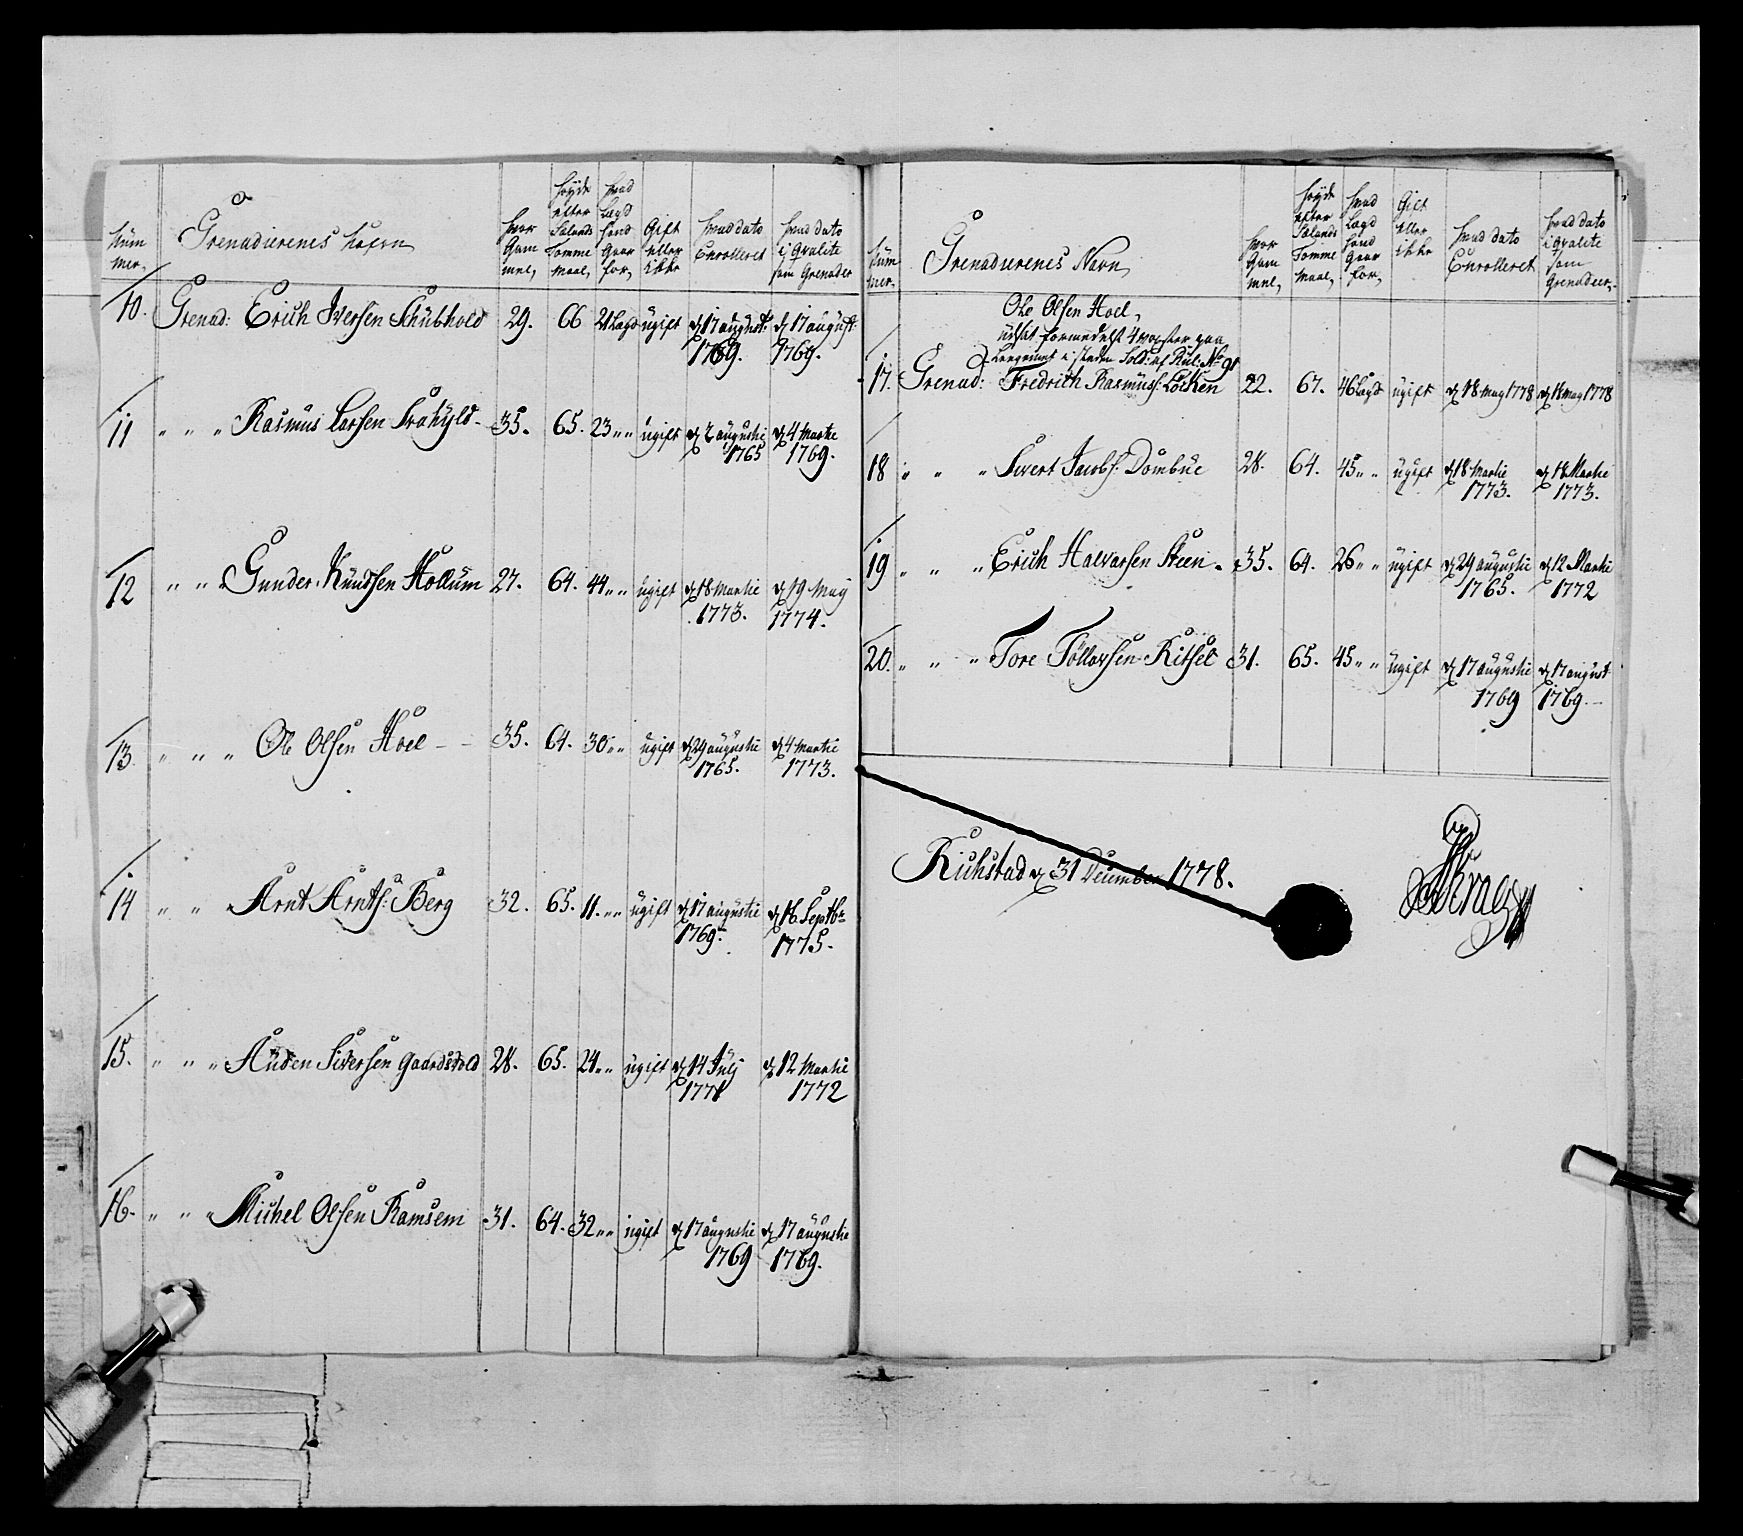 Num mer,
Grenadierenes Nafn
hvor Gam mel,
høyde efter Sælands Tomme Maal,
hvad Lægd hand Gaar for,
Gift eller ikke
hvad dato Enrolleret
hvad dato i qvalite som Grenader
10. Grenad: Erich Iversen Schubhold 29. 66 21 Lægd ugift d 17 august: 1769. d 17 august: 1769.
11 " " " Rasmus Larsen 35. 65. 23 " " ugift d 2 augustii 1765 d 4 Martii 1769.
12 " " " Gunder Knudsen Hollum 27. 64. 44 " " ugift d 18 Martii 1773. d 19 May 1774.
13. " " " Ole Olsen Hoel - - 35. 64. 30 " " ugift d 29 augustii 1765. d 4 Martii 1773.
14 " " Arnt Arnts: Berg 32. 65. 11. " " ugift d 17 augustii 1769. d 16 Septbr 1775.
15. " " " Auden Siversen Gaardsvold 28. 65. 24 " " ugift d 14 Julj 1771 d 12 Martii 1772
16. " " " Michel Olsen Ramsem 31. 64. 32 " " ugift d 17 augustii 1769 d 17 augustii 1769.
Num mer,
Grenadierenes Navn,
hvor Gam mel,
høyde efter Sælands Tomme Maal,
hvad Lægd hand Gaar for,
Gift eller ikke
hvad dato Enrolleret
hvad dato i qvalite som Grenadeer,
Ole Olsen Hoel,
udsat formedelst 4 paa
i steden Sold: af Rul: No 91
17. Grenad: Fredrich Rasmus: Løcken 22. 67. 46 Lægd ugift d 18 May 1778 d 18 May 1778
18 " " " Sivert Jacobs: Dombue 28. 64. 45 " " ugift d 18 Martii 1773. d 18 Martii 1773.
19 " " " Erich Halvarsen Steen 35. 64. 26 " " ugift d 29 augustii 1765. d 12 Martii 1772
20. " " " Tore Tøllovsen Kitsel 31. 65. 45 " " ugift d 17 augustii 1769 d 17 august 1769.
d 31 December 1778.